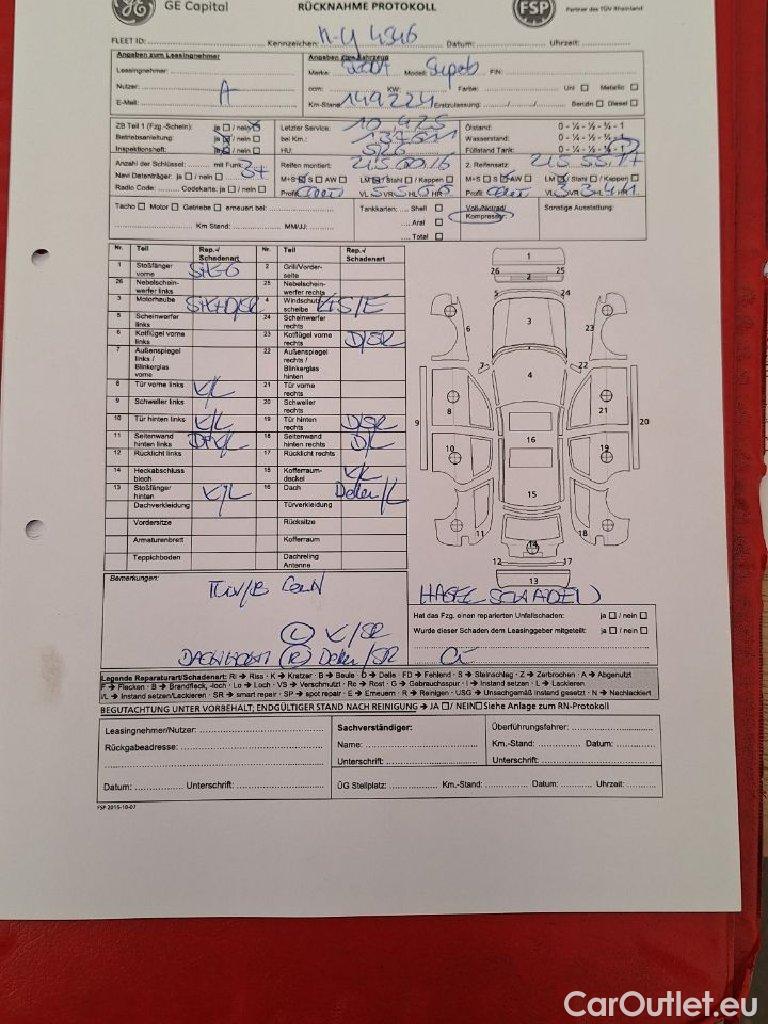 GE Capital
RÜCKNAHME PROTOKOLL
FSP
Partner des TÜV Rheinland
FLEET ID:
Kennzeichen:
Datum:
Uhrzeit:
Angaben zum Leasingnehmer
Leasingnehmer:
Nutzer: A
E-Mail:
Angaben zum Fahrzeug
Marke: Skoda Modell: Superb FIN:
ccm: KW: Farbe: Uni Metallic
Km-Stand: 149224 Erstzulassung: Benzin Diesel
ZB Teil 1 (Fzg.-Schein): ja / nein
Betriebsanleitung: ja / nein
Inspektionsheft: ja / nein
Letzter Service:
bei Km.:
HU: 5/26
Ölstand: 0 - ¼ - ½ - ¾ - 1
Wasserstand: 0 - ¼ - ½ - ¾ - 1
Füllstand Tank: 0 - ¼ - ½ - ¾ - 1
Anzahl der Schlüssel: mit Funk:
Navi Datenträger: ja / nein
Radio Code: Codekarte: ja / nein
Reifen montiert: 215.60.16
M+S S AW LM / Stahl / Kappen
Profil VL 5 VR 5 HL 5 HR 5
2. Reifensatz: 215.55.17
M+S S AW LM / Stahl / Kappen
Profil VL VR HL HR
Tacho Motor Getriebe erneuert bei:
Km Stand: MM/JJ:
Tankkarten: Shell
Aral
Total
Voll-/Notrad/
Kompressor:
Sonstige Ausstattung:
Nr. Teil Rep.-/ Schadenart Nr. Teil Rep.-/ Schadenart
1 Stoßfänger vorne 2 Grill/Vorderseite
26 Nebelscheinwerfer links 25 Nebelscheinwerfer rechts
3 Motorhaube 4 Windschutzscheibe
5 Scheinwerfer links 24 Scheinwerfer rechts
6 Kotflügel vorne links 23 Kotflügel vorne rechts D/SR
7 Außenspiegel links / Blinkerglas vorne 22 Außenspiegel rechts / Blinkerglas hinten
8 Tür vorne links K/L 21 Tür vorne rechts
9 Schweller links 20 Schweller rechts
10 Tür hinten links K/L 19 Tür hinten rechts D/SR
11 Seitenwand hinten links 18 Seitenwand hinten rechts D/L
12 Rücklicht links 17 Rücklicht rechts
14 Heckabschlussblech 15 Kofferraumdeckel K/L
13 Stoßfänger hinten K/L 16 Dach Dellen/L
Dachverkleidung Türverkleidung
Vordersitze Rücksitze
Armaturenbrett Kofferraum
Teppichboden Dachreling Antenne
1
26 25
2
5 24
6 3 23
7 4 22
8 21
9 20
16
10 19
15
11 14 18
12 17
13
Bemerkungen:
(L) K/SR
(R) Dellen/SR
HAGELSCHADEN
Hat das Fzg. einen reparierten Unfallschaden: ja / nein
Wurde dieser Schaden dem Leasinggeber mitgeteilt: ja / nein
Legende Reparaturart/Schadenart: Ri → Riss · K → Kratzer · B → Beule · D → Delle · FD → Fehlend · S → Steinschlag · Z → Zerbrochen · A → Abgenutzt
F → Flecken · B → Brandfleck, -loch · Lo → Loch · VS → Verschmutzt · Ro → Rost · G → Gebrauchsspur · I → Instand setzen · L → Lackieren
I/L → Instand setzen/Lackieren · SR → smart repair · SP → spot repair · E → Erneuern · R → Reinigen · USG → Unsachgemäß instand gesetzt · N → Nachlackiert
BEGUTACHTUNG UNTER VORBEHALT; ENDGÜLTIGER STAND NACH REINIGUNG → JA / NEIN Siehe Anlage zum RN-Protokoll
Leasingnehmer/Nutzer:
Rückgabeadresse:
Datum: Unterschrift:
Sachverständiger:
Name:
Unterschrift:
Überführungsfahrer:
Km.-Stand: Datum:
Unterschrift:
ÜG Stellplatz: Km.-Stand: Datum: Uhrzeit:
FSP 2015-10-07
CarOutlet.eu